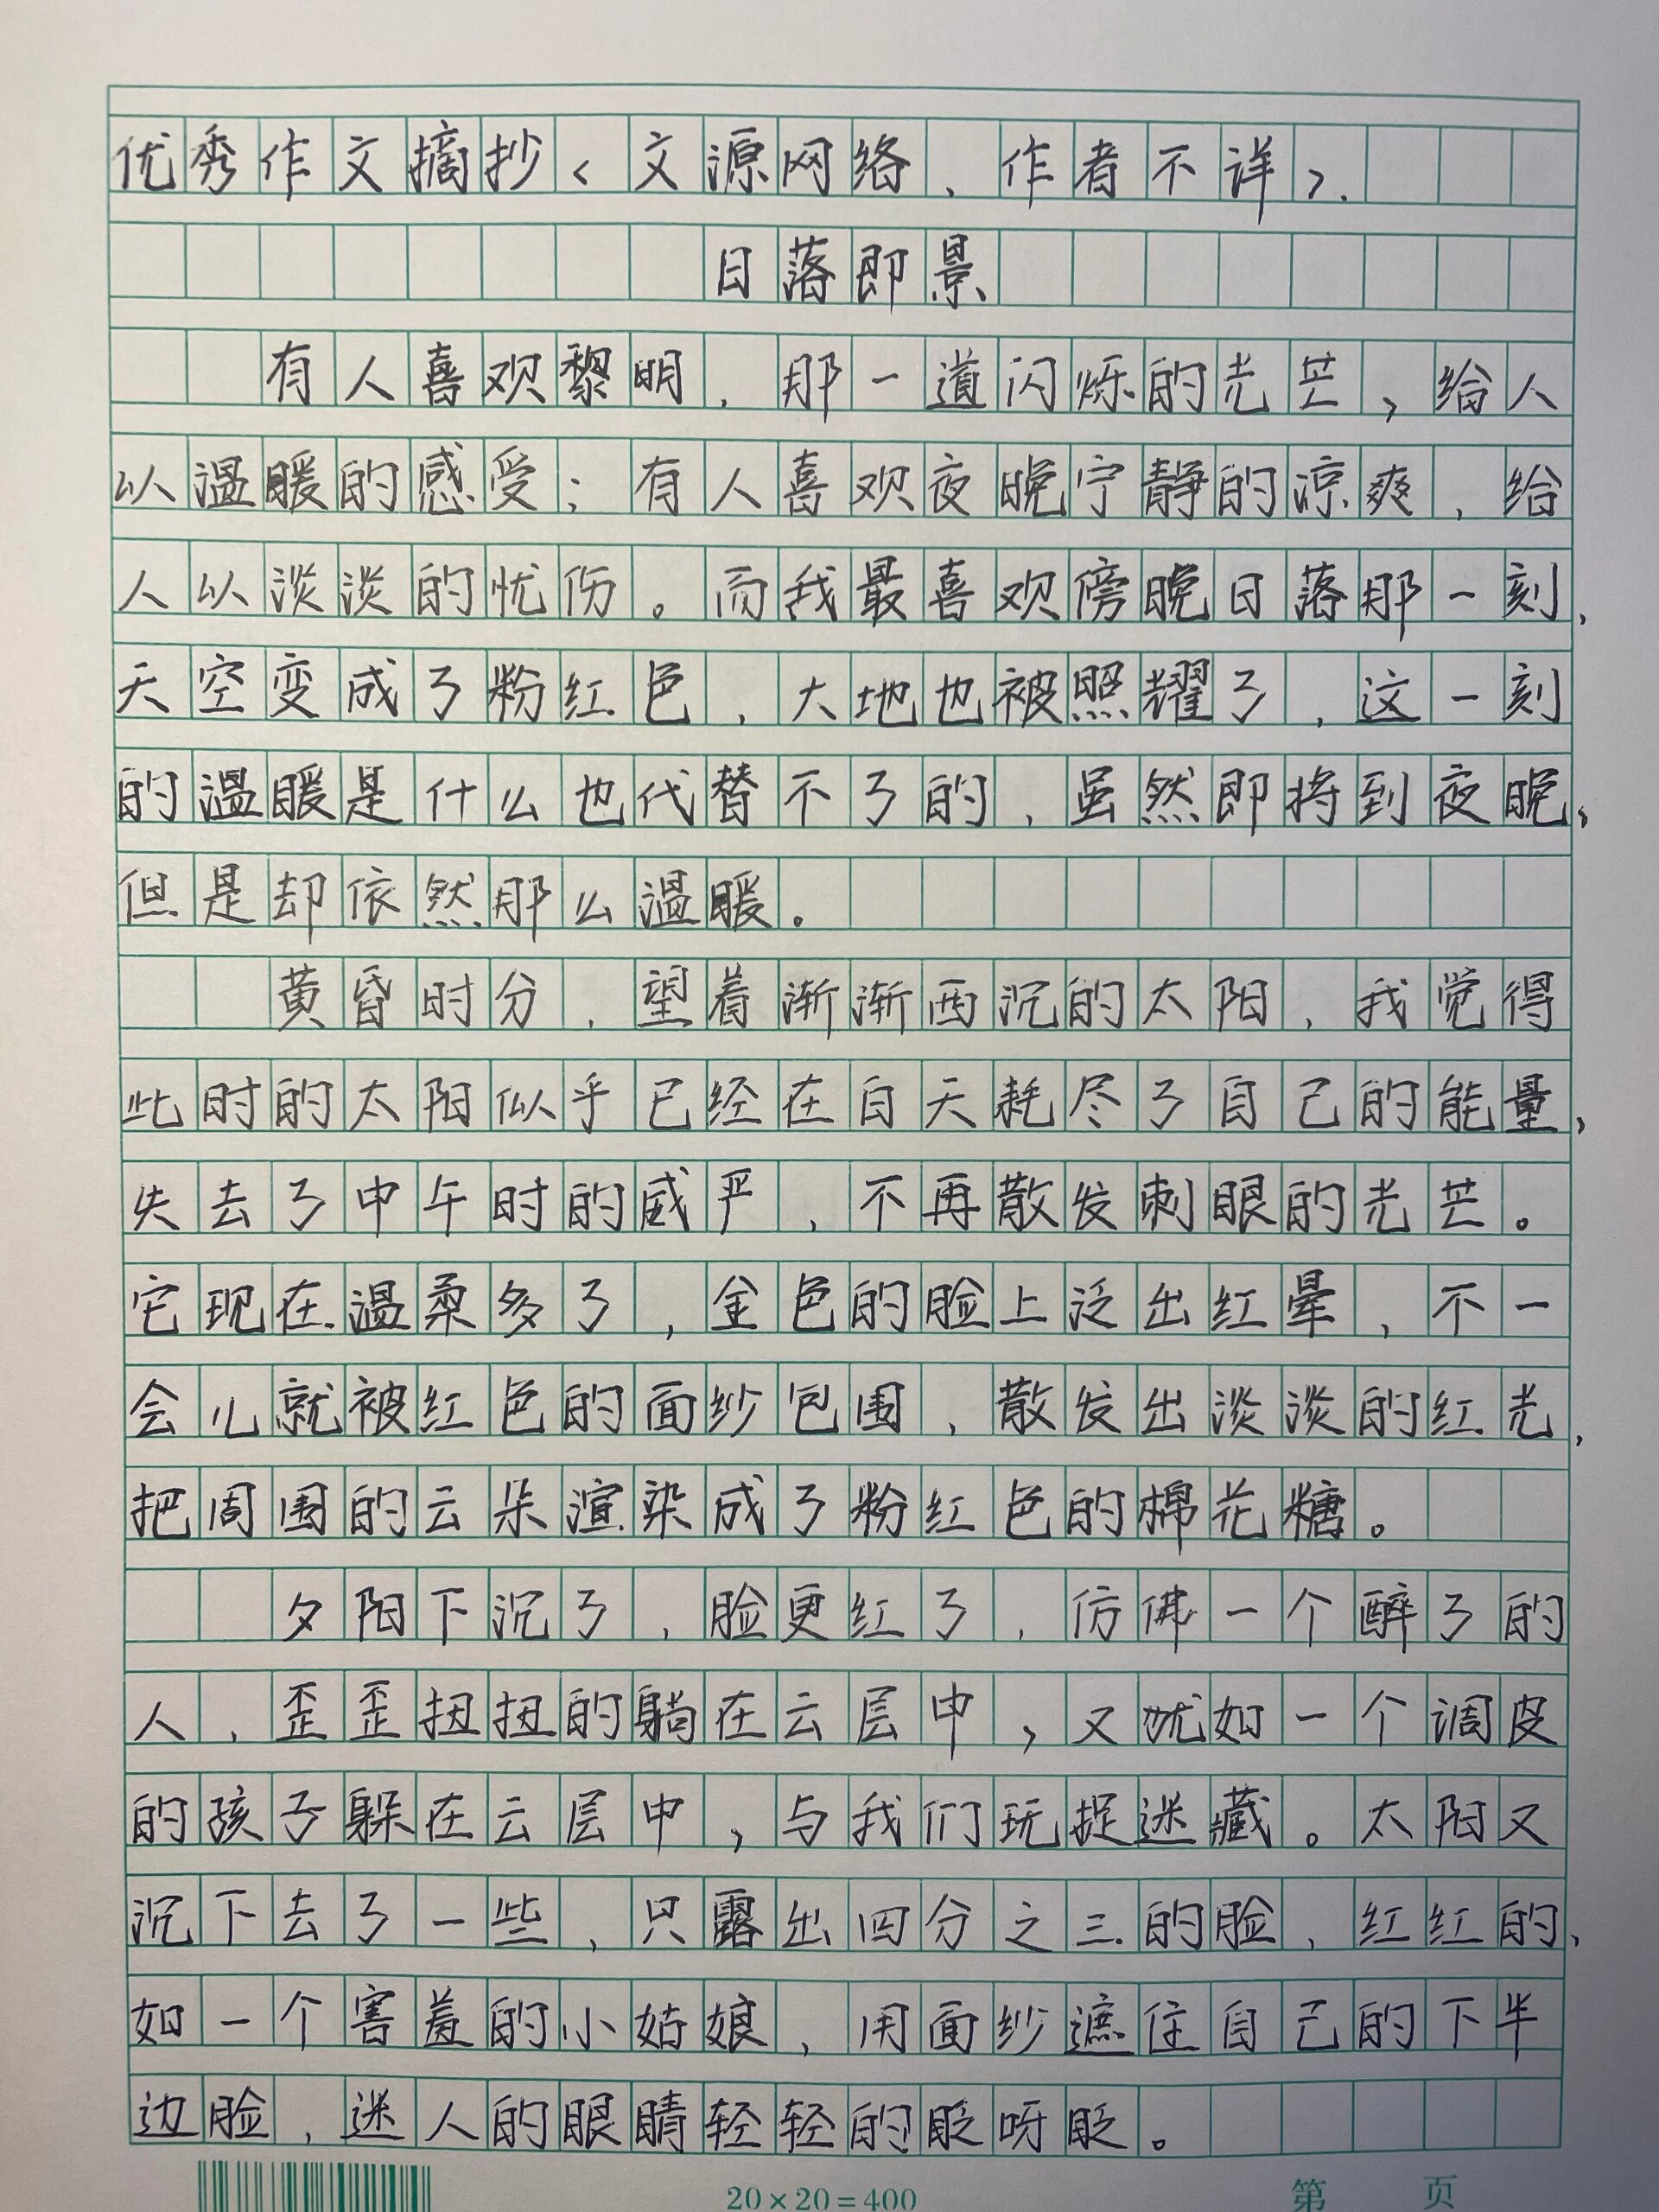 优秀作文摘抄<文源网络,作者不详>.
日落即景
有人喜欢黎明,那一道闪烁的光芒,给人
以温暖的感受;有人喜欢夜晚宁静的凉爽,给
人以淡淡的忧伤。而我最喜欢傍晚日落那一刻,
天空变成了粉红色,大地也被照耀了,这一刻
的温暖是什么也代替不了的,虽然即将到夜晚,
但是却依然那么温暖。
黄昏时分,望着渐渐西沉的太阳,我觉得
此时的太阳似乎已经在白天耗尽了自己的能量,
失去了中午时的威严,不再散发刺眼的光芒。
它现在温柔多了,金色的脸上泛出红晕,不一
会儿就被红色的面纱包围,散发出淡淡的红光,
把周围的云朵渲染成了粉红色的棉花糖。
夕阳下沉了,脸更红了,仿佛一个醉了的
人,歪歪扭扭的躺在云层中,又犹如一个调皮
的孩子躲在云层中,与我们玩捉迷藏。太阳又
沉下去了一些,只露出四分之三的脸,红红的,
如一个害羞的小姑娘,用面纱遮住自己的下半
边脸,迷人的眼睛轻轻的眨呀眨。
20×20=400
第 页